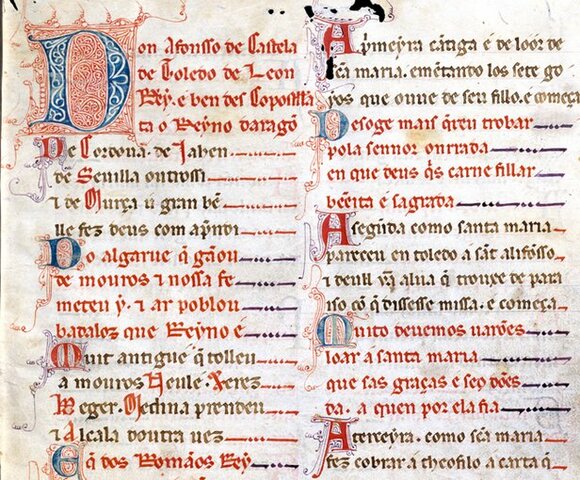 Don Afonsso de Castela
de Toledo de Leon
Rey. e ben des Conpostela
ta o Reyno daragõ
De Cordoua. de Jahen
de Seuilla outrossi
⁊ de Murça u gran bẽ
lle fez deus com ap̃ndi
Do algarue q̃ gãou
de mouros ⁊ nossa fe
meteu y. ⁊ ar poblou
badaloz que Reyno é
Muit antigue q̃ tolleu
a mouros Neule. Xerez
Beger. Medina prendeu
⁊ Alcala doutra uez
E q̃ dos Romãos Rey
A p̃meyra cãtiga é de loor de
sc̃a maria. emẽtando los sete go
jos que ouue de seu fillo. e comẽça
Des oge mais q̃reu trobar
pola sennor onrrada
en que deus q̃s carne fillar
bẽeita e sagrada
A segũda como santa maria
pareceu en toledo a sãt alifonsso
⁊ deull hũa alua q̃ trouxe de para
iso cõ q̃ dissesse missa. e comeca
Muito deuemos uarões
loar a santa maria
que sas graças e seus dões
da. a quen por ela fia
A terceyra. como sc̃a maria
fez cobrar a theofilo a carta q̃